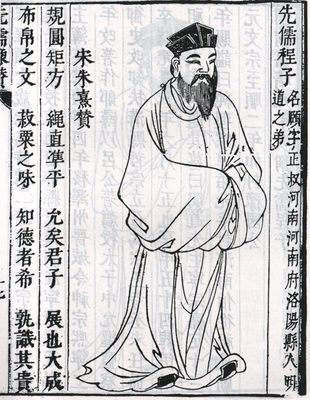 先儒程子 名頤字正叔河南河南府洛陽縣人明
道之弟
宋朱熹贊
規圓矩方 繩直準平 允矣君子 展也大成
布帛之文 菽粟之味 知德者希 孰識其貴